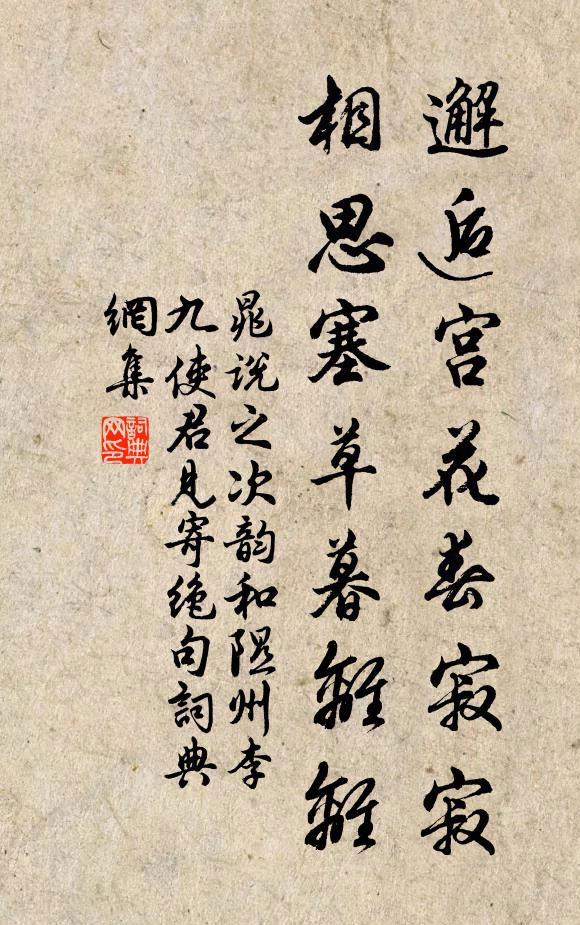 邂逅宮花春寂寂
相思塞草暮離離
晁說之次韵和隰州李
九使君見寄絶句詞典
網集
詞典
网印